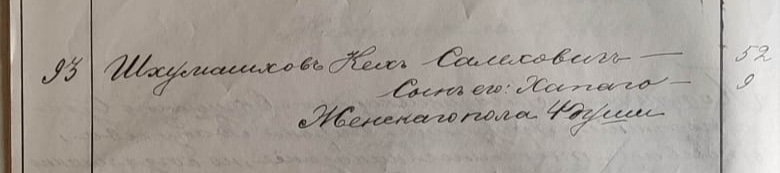 93 Шхумашховъ Кехъ Салеховичъ — 52
Сынъ его: Хапаго — 9
Женскаго пола 4 души